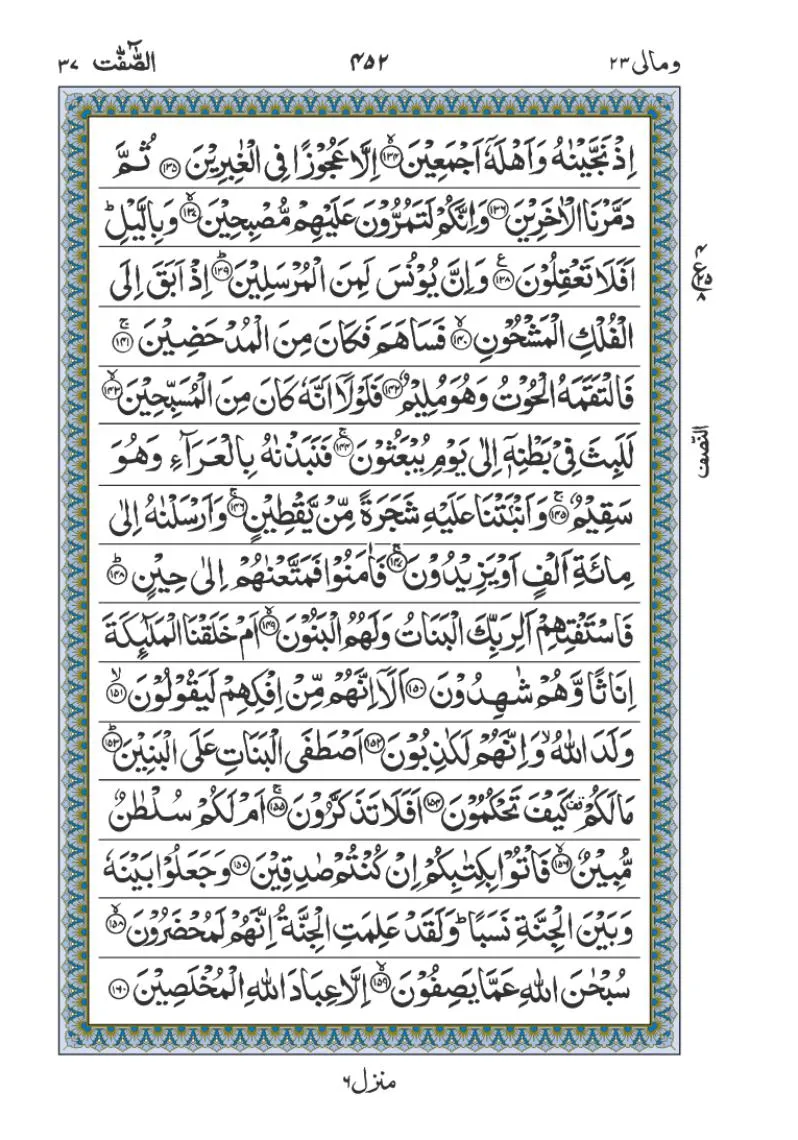 ومالی ۲۳
۴۵۲
الصّٰٓفّٰت ۳۷
اِذْ نَجَّیْنٰهُ وَ اَهْلَهٗۤ اَجْمَعِیْنَ ۙ﴿۱۳۴﴾ اِلَّا عَجُوْزًا فِی الْغٰبِرِیْنَ ﴿۱۳۵﴾ ثُمَّ
دَمَّرْنَا الْاٰخَرِیْنَ ﴿۱۳۶﴾ وَ اِنَّكُمْ لَتَمُرُّوْنَ عَلَیْهِمْ مُّصْبِحِیْنَ ۙ﴿۱۳۷﴾ وَ بِالَّیْلِ ؕ
اَفَلَا تَعْقِلُوْنَ ﴿۱۳۸﴾ ع وَ اِنَّ یُوْنُسَ لَمِنَ الْمُرْسَلِیْنَ ؕ﴿۱۳۹﴾ اِذْ اَبَقَ اِلَی
الْفُلْكِ الْمَشْحُوْنِ ۙ﴿۱۴۰﴾ فَسَاهَمَ فَكَانَ مِنَ الْمُدْحَضِیْنَ ۚ﴿۱۴۱﴾
فَالْتَقَمَهُ الْحُوْتُ وَ هُوَ مُلِیْمٌ ﴿۱۴۲﴾ فَلَوْلَاۤ اَنَّهٗ كَانَ مِنَ الْمُسَبِّحِیْنَ ۙ﴿۱۴۳﴾
لَلَبِثَ فِیْ بَطْنِهٖۤ اِلٰی یَوْمِ یُبْعَثُوْنَ ۚ﴿۱۴۴﴾ فَنَبَذْنٰهُ بِالْعَرَآءِ وَ هُوَ
سَقِیْمٌ ۚ﴿۱۴۵﴾ وَ اَنْۢبَتْنَا عَلَیْهِ شَجَرَةً مِّنْ یَّقْطِیْنٍ ۚ﴿۱۴۶﴾ وَ اَرْسَلْنٰهُ اِلٰی
مِائَةِ اَلْفٍ اَوْ یَزِیْدُوْنَ ۚ﴿۱۴۷﴾ فَاٰمَنُوْا فَمَتَّعْنٰهُمْ اِلٰی حِیْنٍ ؕ﴿۱۴۸﴾
فَاسْتَفْتِهِمْ اَلِرَبِّكَ الْبَنَاتُ وَ لَهُمُ الْبَنُوْنَ ۙ﴿۱۴۹﴾ اَمْ خَلَقْنَا الْمَلٰٓىِٕكَةَ
اِنَاثًا وَّ هُمْ شٰهِدُوْنَ ﴿۱۵۰﴾ اَلَاۤ اِنَّهُمْ مِّنْ اِفْكِهِمْ لَیَقُوْلُوْنَ ۙ﴿۱۵۱﴾
وَلَدَ اللّٰهُ ۙ وَ اِنَّهُمْ لَكٰذِبُوْنَ ﴿۱۵۲﴾ اَصْطَفَی الْبَنَاتِ عَلَی الْبَنِیْنَ ؕ﴿۱۵۳﴾
مَا لَكُمْ ۫ كَیْفَ تَحْكُمُوْنَ ﴿۱۵۴﴾ اَفَلَا تَذَكَّرُوْنَ ۚ﴿۱۵۵﴾ اَمْ لَكُمْ سُلْطٰنٌ
مُّبِیْنٌ ۙ﴿۱۵۶﴾ فَاْتُوْا بِكِتٰبِكُمْ اِنْ كُنْتُمْ صٰدِقِیْنَ ﴿۱۵۷﴾ وَ جَعَلُوْا بَیْنَهٗ
وَ بَیْنَ الْجِنَّةِ نَسَبًا ؕ وَ لَقَدْ عَلِمَتِ الْجِنَّةُ اِنَّهُمْ لَمُحْضَرُوْنَ ۙ﴿۱۵۸﴾
سُبْحٰنَ اللّٰهِ عَمَّا یَصِفُوْنَ ۙ﴿۱۵۹﴾ اِلَّا عِبَادَ اللّٰهِ الْمُخْلَصِیْنَ ﴿۱۶۰﴾
۴
ع ۲۵
۸
النّصف
منزل ۶